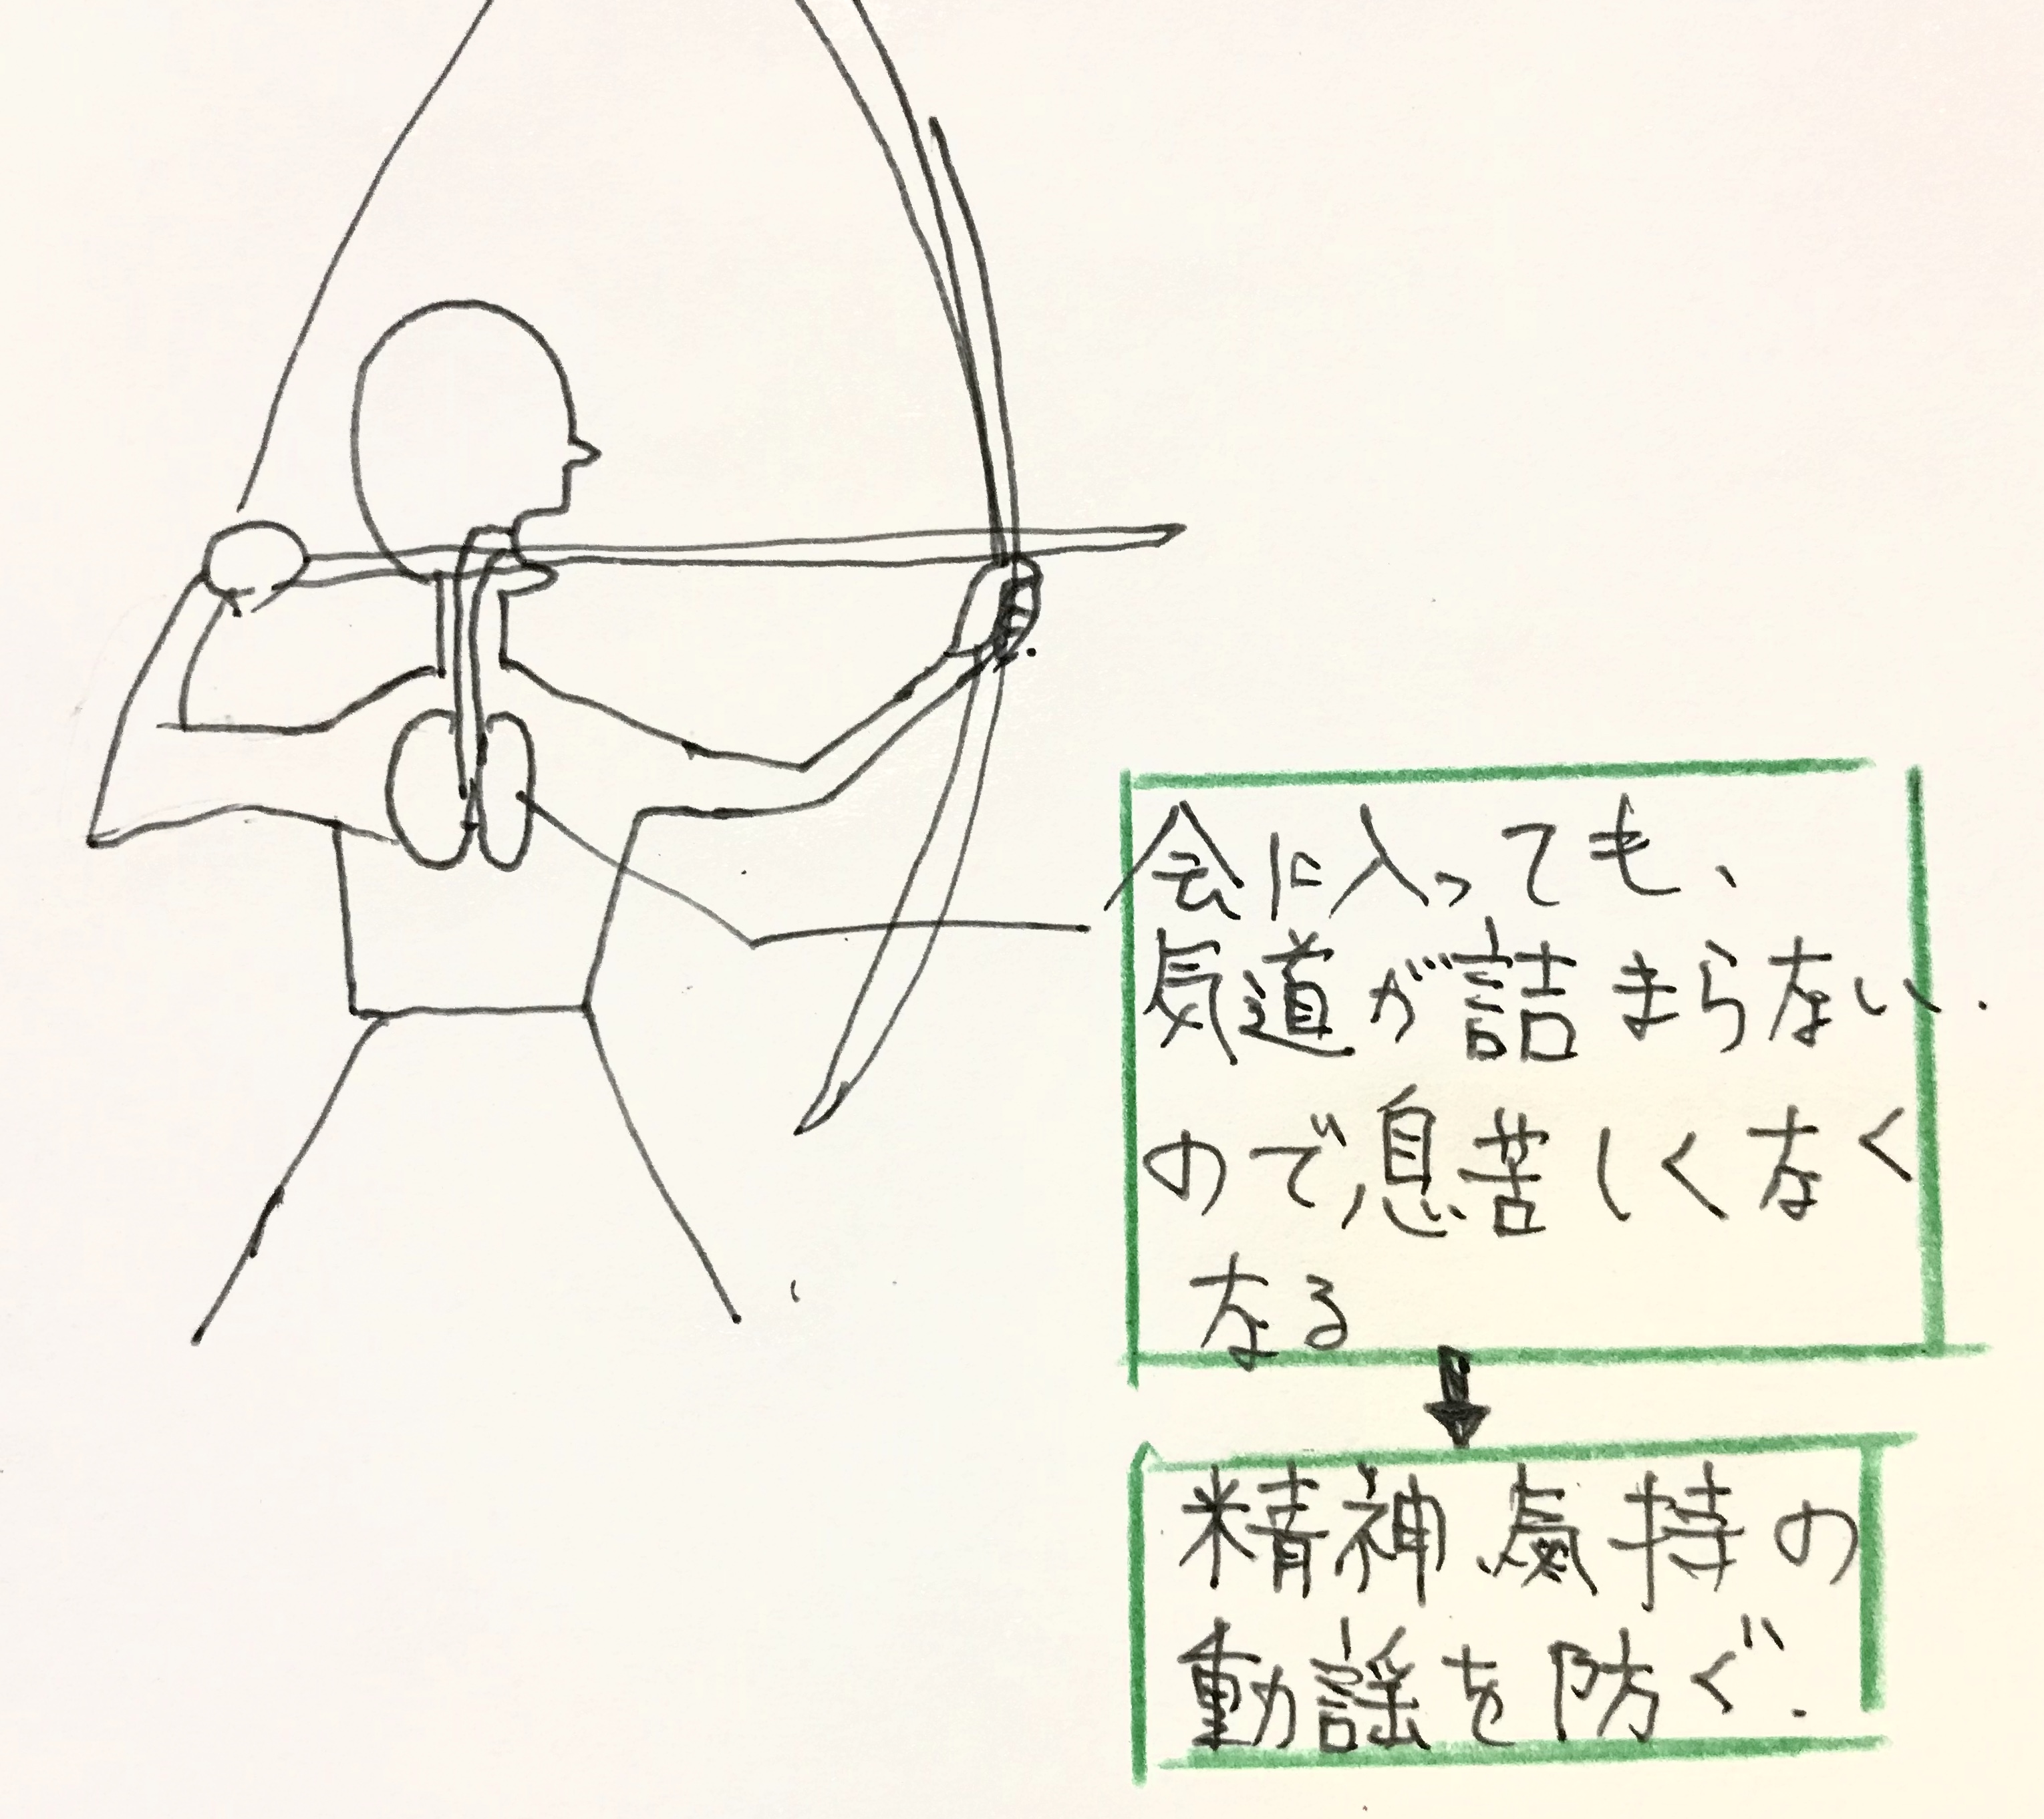 会に入っても、
気道が詰まらない.
ので息苦しくなく
なる
精神、気持の
動謡を防ぐ.